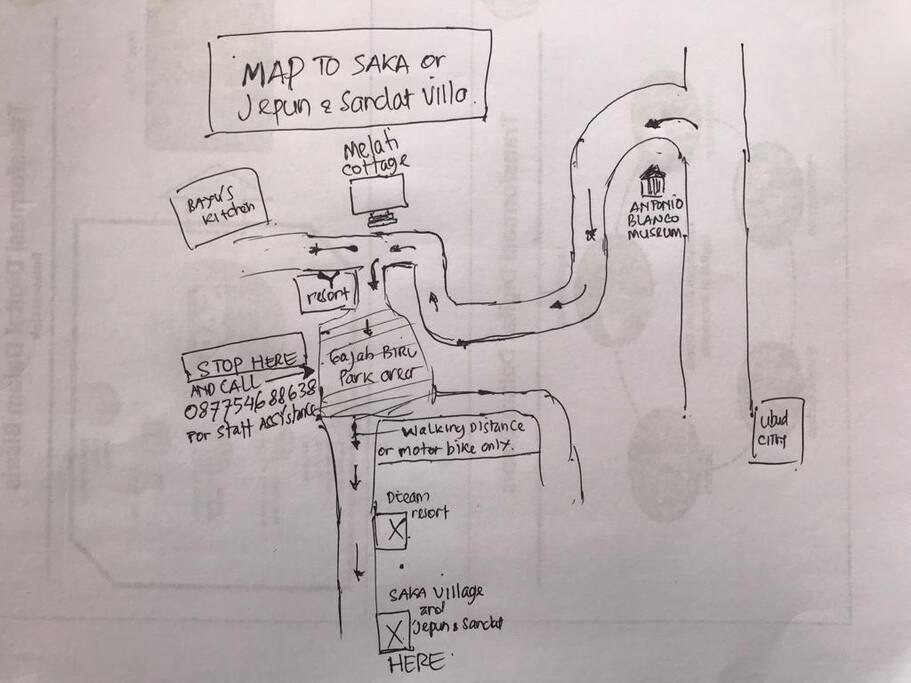 MAP TO SAKA or
Jepun & Sandat Villa.
Melati
cottage
BAYU'S
Kitchen
ANTONIO
BLANCO
MUSEUM
resort
STOP HERE
AND CALL
087754688638
For Staff ASSYstance
Gajah BIRU
Park area
Walking Distance
or motor bike only.
Ubud
CITY
Dteam
resort
SAKA Village
and
Jepun & Sandat
HERE.